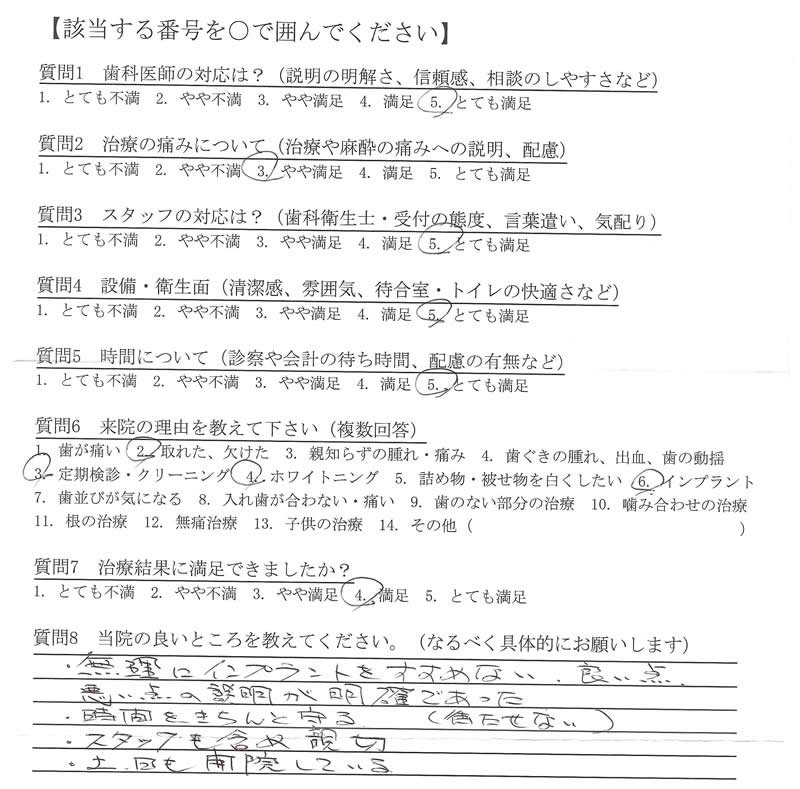 【該当する番号を○で囲んでください】
質問1　歯科医師の対応は？（説明の明解さ、信頼感、相談のしやすさなど）
1. とても不満　2. やや不満　3. やや満足　4. 満足　5. とても満足
質問2　治療の痛みについて（治療や麻酔の痛みへの説明、配慮）
1. とても不満　2. やや不満　3. やや満足　4. 満足　5. とても満足
質問3　スタッフの対応は？（歯科衛生士・受付の態度、言葉遣い、気配り）
1. とても不満　2. やや不満　3. やや満足　4. 満足　5. とても満足
質問4　設備・衛生面（清潔感、雰囲気、待合室・トイレの快適さなど）
1. とても不満　2. やや不満　3. やや満足　4. 満足　5. とても満足
質問5　時間について（診察や会計の待ち時間、配慮の有無など）
1. とても不満　2. やや不満　3. やや満足　4. 満足　5. とても満足
質問6　来院の理由を教えて下さい（複数回答）
1. 歯が痛い　2. 取れた、欠けた　3. 親知らずの腫れ・痛み　4. 歯ぐきの腫れ、出血、歯の動揺
3. 定期検診・クリーニング　4. ホワイトニング　5. 詰め物・被せ物を白くしたい　6. インプラント
7. 歯並びが気になる　8. 入れ歯が合わない・痛い　9. 歯のない部分の治療　10. 噛み合わせの治療
11. 根の治療　12. 無痛治療　13. 子供の治療　14. その他（　　　　　　　　）
質問7　治療結果に満足できましたか？
1. とても不満　2. やや不満　3. やや満足　4. 満足　5. とても満足
質問8　当院の良いところを教えてください。（なるべく具体的にお願いします）
・無理にインプラントをすすめない、良い点、
悪い点の説明が明確であった
・時間をきちんと守る　（待たせない）
・スタッフも含め親切
・土日も開院している